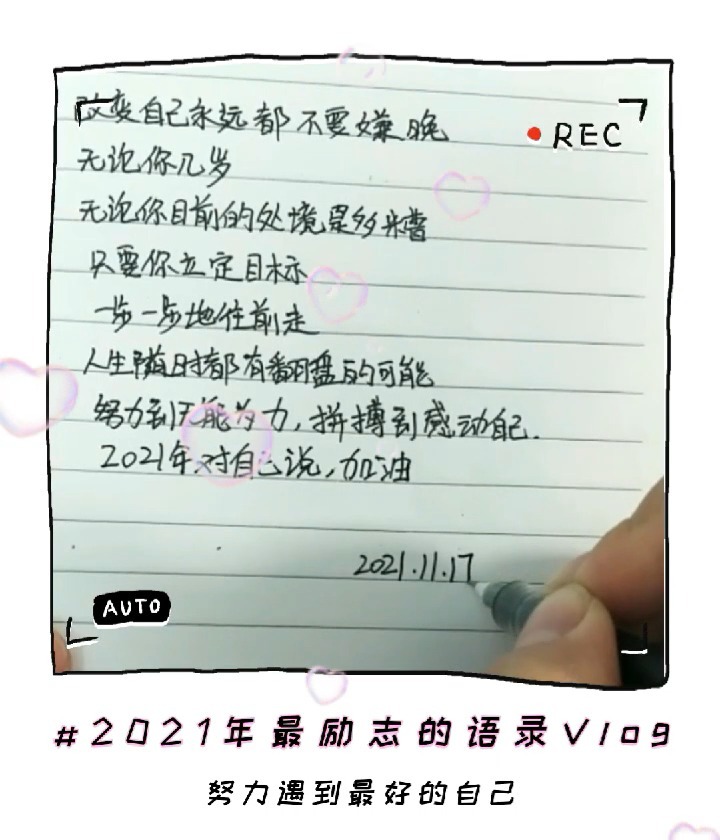 改变自己永远都不要嫌晚
REC
无论你几岁
无论你目前的处境是多糟
只要你立定目标
一步一步地往前走
人生随时都有翻盘的可能
努力到无能为力，拼搏到感动自己.
2021年对自己说，加油
2021.11.17
AUTO
#2021年最励志的语录Vlog
努力遇到最好的自己